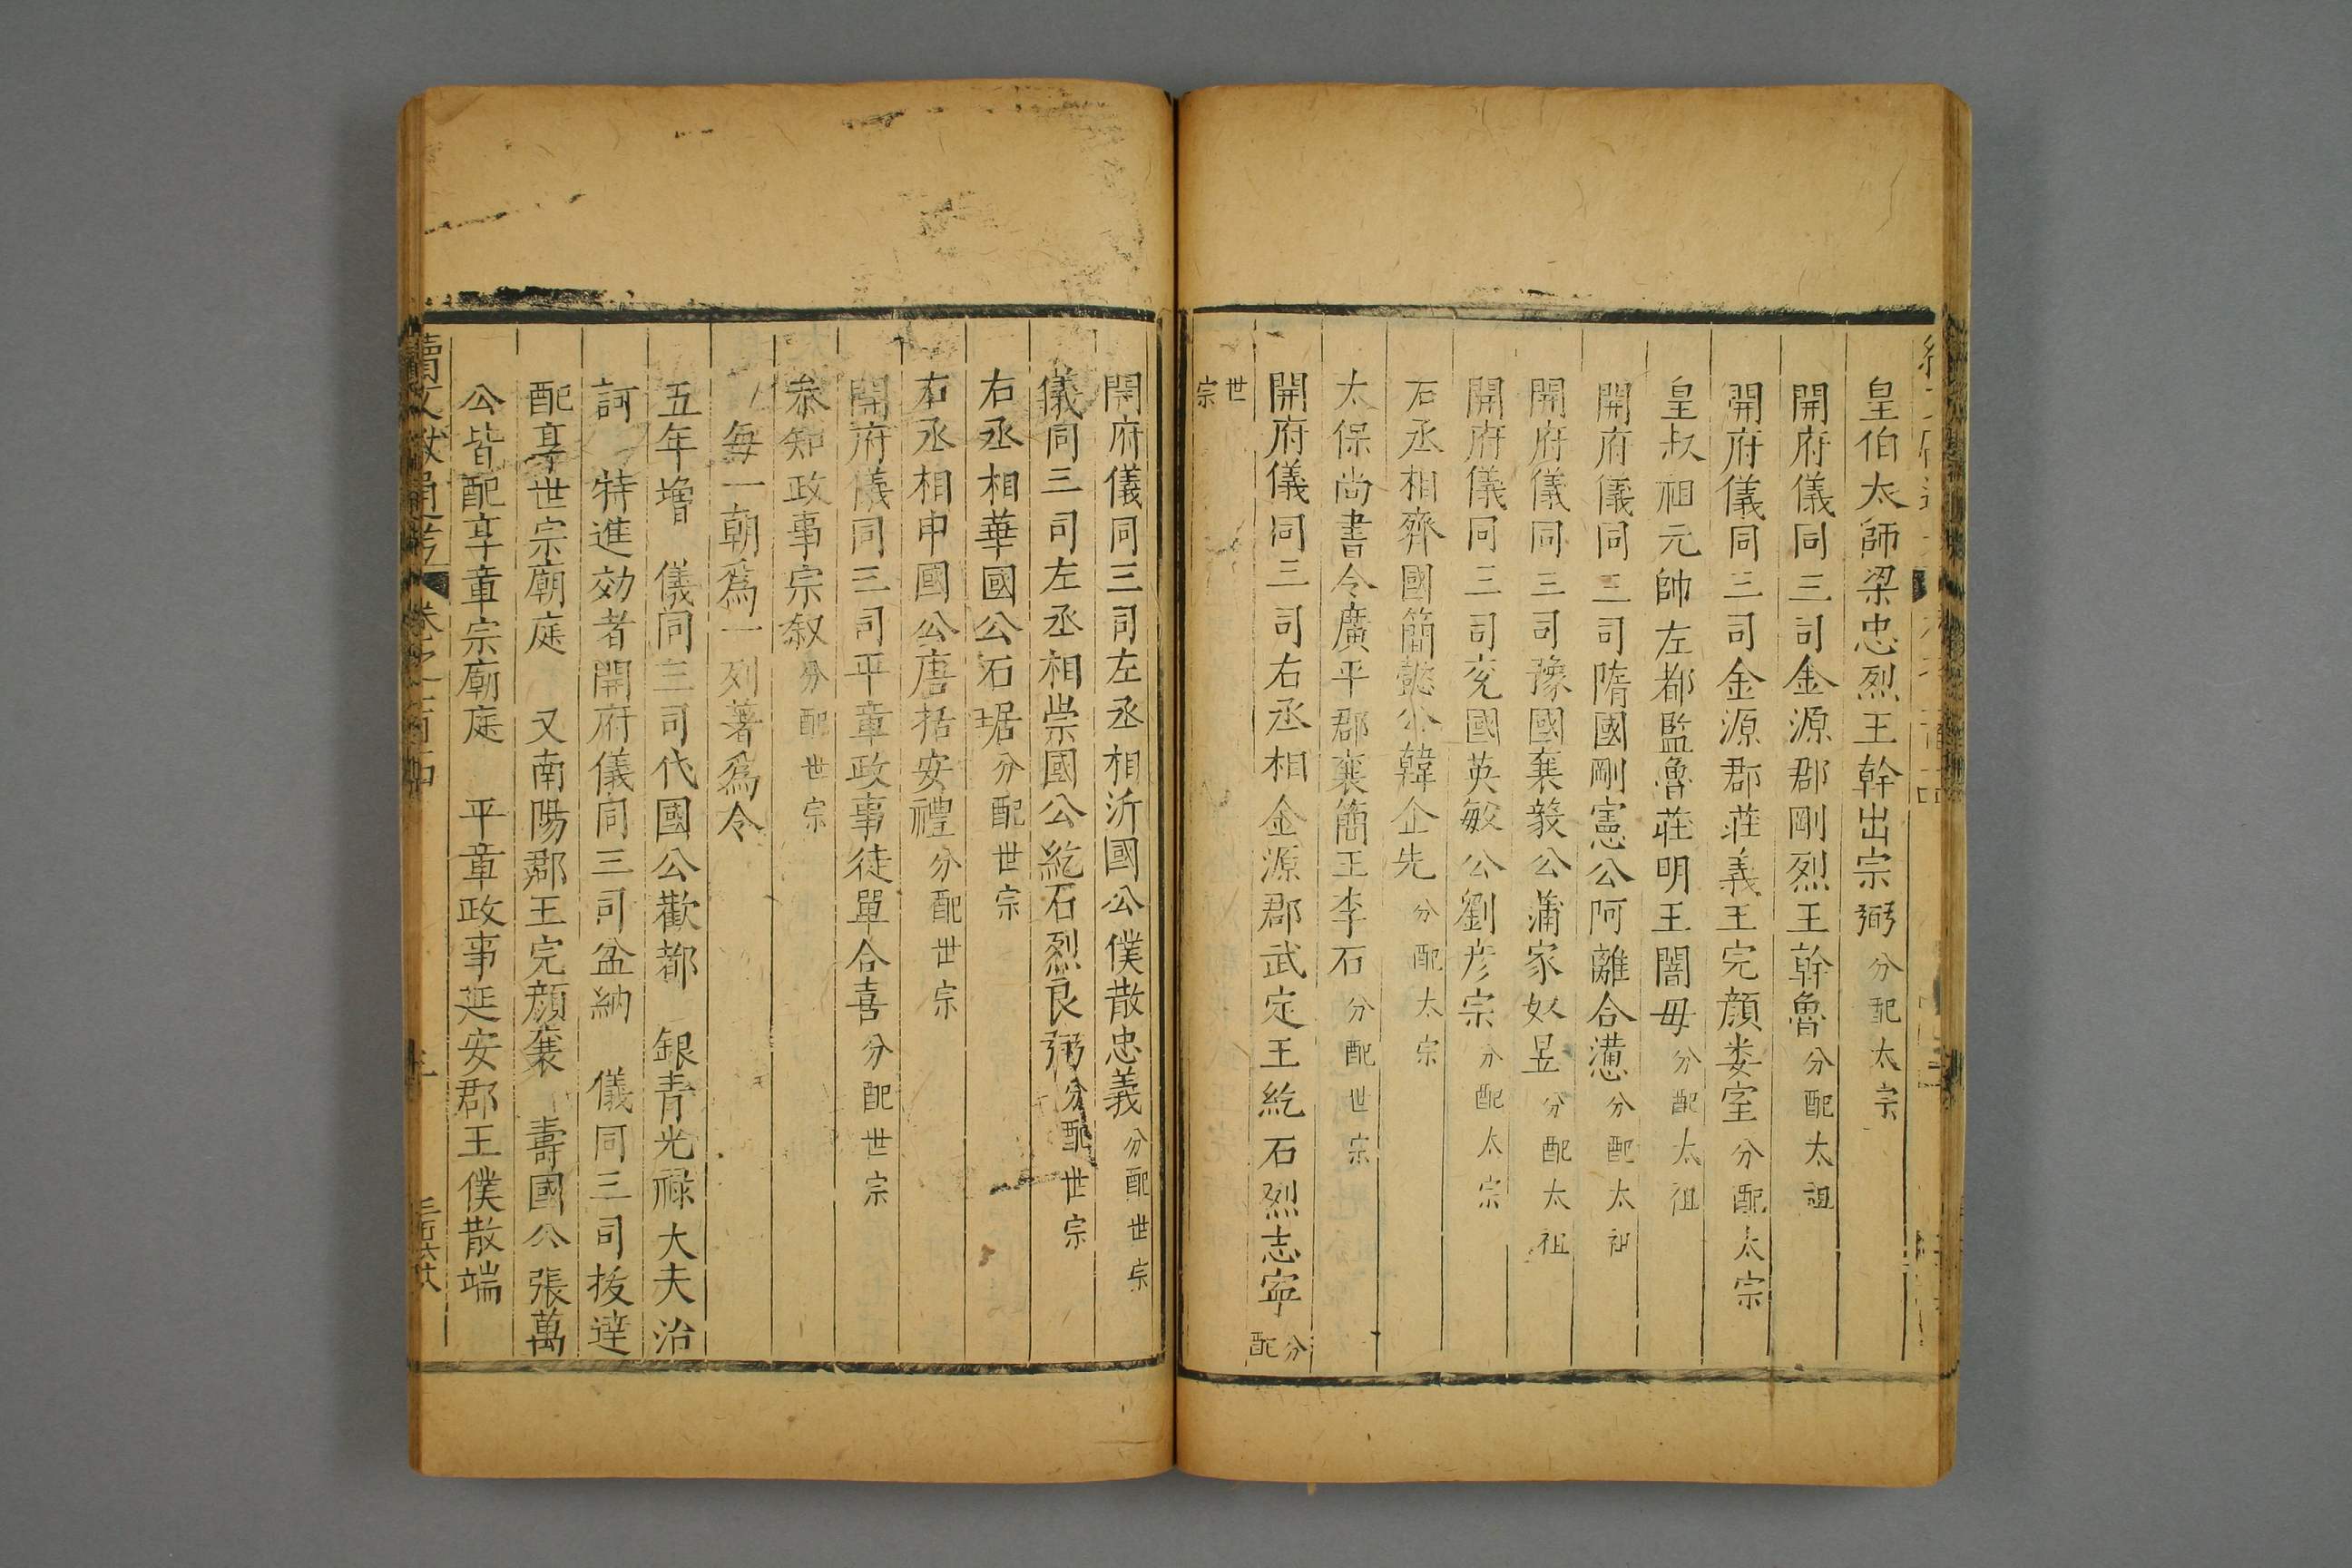 皇伯太師梁忠烈王幹出宗弼分配太宗
開府儀同三司金源郡剛烈王幹魯分配太祖
開府儀同三司金源郡莊義王完顔婁室分配太宗
皇叔祖元帥左都監魯莊明王闍母分配太祖
開府儀同三司隋國剛憲公阿離合懣分配太祖
開府儀同三司豫國襄毅公蒲家奴昱分配太祖
開府儀同三司兖國英敏公劉彦宗分配太宗
右丞相齊國簡懿公韓企先分配太宗
太保尚書令廣平郡襄簡王李石分配世宗
開府儀同三司右丞相金源郡武定王紇石烈志寧分配
世宗
開府儀同三司左丞相沂國公僕散忠義分配世宗
儀同三司左丞相崇國公紇石烈良弼分配世宗
右丞相華國公石琚分配世宗
右丞相申國公唐括安禮分配世宗
開府儀同三司平章政事徒單合喜分配世宗
叅知政事宗叙分配世宗
每一朝爲一列著爲令
五年增 儀同三司代國公歡都 銀青光禄大夫治
訶 特進効者開府儀同三司盆納 儀同三司拔達
配享世宗廟庭 又南陽郡王完顔襄 壽國公張萬
公皆配享章宗廟庭 平章政事延安郡王僕散端
續文獻通考 卷之一百